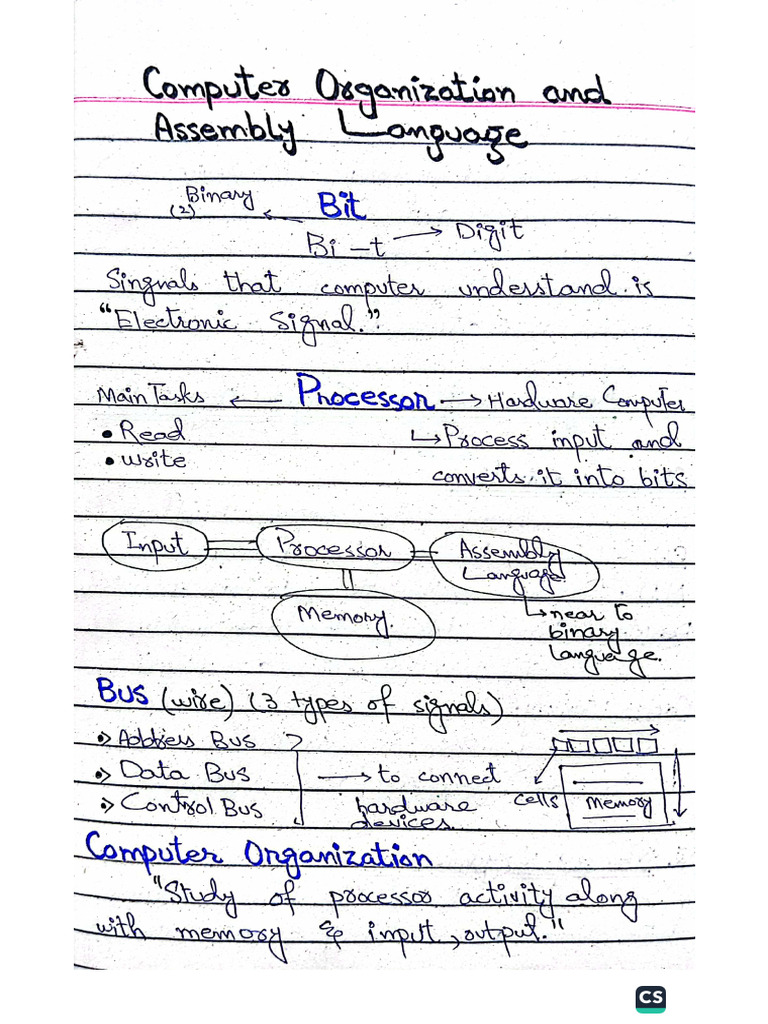 Computer Organization and
Assembly Language
Binary
(2)
Bit
Bi - t → Digit
Singnals that computer understand is
"Electronic Signal."
Main Tasks ← Processor → Hardware Computer
• Read
• write
↳ Process input and
converts it into bits
Input
Processor
Assembly
Language
Memory.
↳ near to
binary
language.
Bus (wire) (3 types of signals)
• Address Bus
• Data Bus
• Control Bus
→ to connect
hardware
devices.
cells
Memory
Computer Organization
"Study of processor activity along
with memory & input, output."
CS